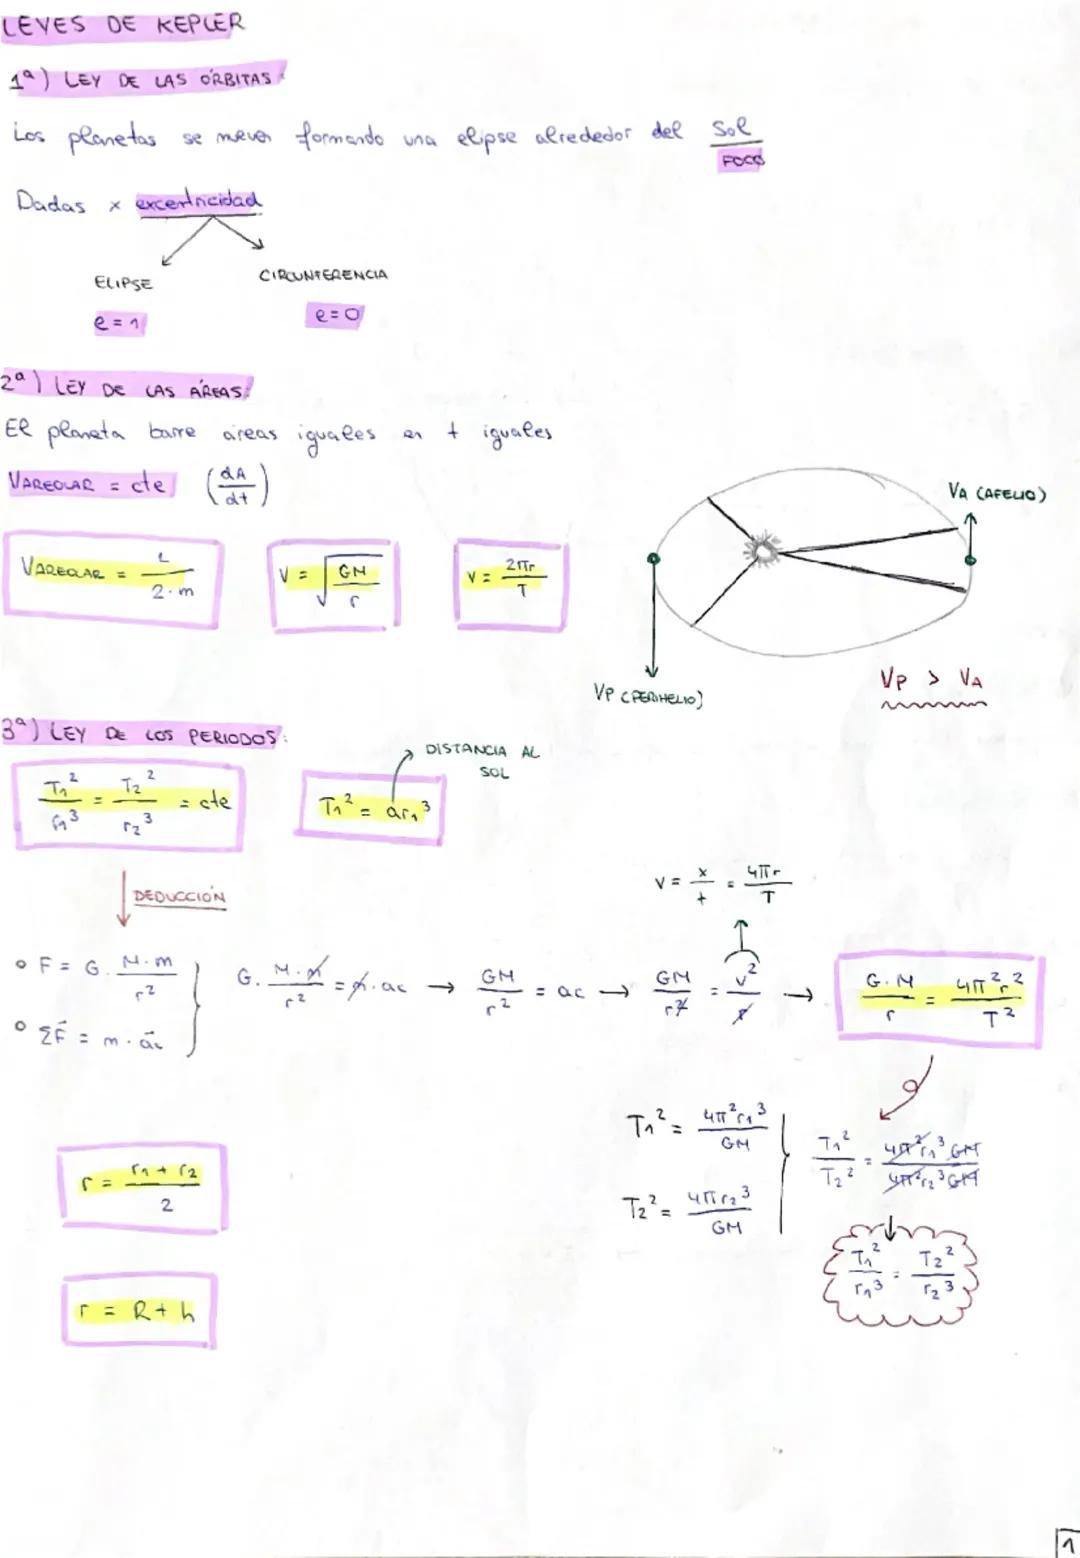 LEYES DE KEPLER
1ª) LEY DE LAS ÓRBITAS:
Los planetas se mueven formando una elipse alrededor del Sol
FOCO
Dadas x excentricidad
ELIPSE CIRCUNFERENCIA
e = 1 e = 0
2ª) LEY DE LAS ÁREAS:
El planeta barre áreas iguales en t iguales
VAREOLAR = cte (dA/dt)
VA (AFELIO)
VAREOLAR = L/2·m V = √(GM/r) V = 2πr/T
VP > VA
VP (PERIHELIO)
3ª) LEY DE LOS PERIODOS:
DISTANCIA AL SOL
T₁²/r₁³ = T₂²/r₂³ = cte T₁² = ar₁³
DEDUCCIÓN
V = x/t = 4πr/T
• F = G · M·m/r²
• ΣF⃗ = m · a⃗c
G · M·m/r² = m·ac → GM/r² = ac → GM/r² = v²/r → G·M/r = 4π²r²/T²
T₁² = 4π²r₁³/GM
T₂² = 4πr₂³/GM
T₁²/T₂² = 4π²r₁³GM/4π²r₂³GM
T₁²/r₁³ = T₂²/r₂³
r = r₁ + r₂/2
r = R + h
1